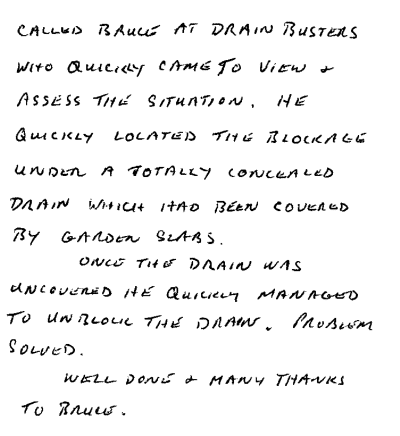 CALLED BRUCE AT DRAIN BUSTERS
WHO QUICKLY CAME TO VIEW &
ASSESS THE SITUATION. HE
QUICKLY LOCATED THE BLOCKAGE
UNDER A TOTALLY CONCEALED
DRAIN WHICH HAD BEEN COVERED
BY GARDEN SLABS.
ONCE THE DRAIN WAS
UNCOVERED HE QUICKLY MANAGED
TO UNBLOCK THE DRAIN. PROBLEM
SOLVED.
WELL DONE & MANY THANKS
TO BRUCE.